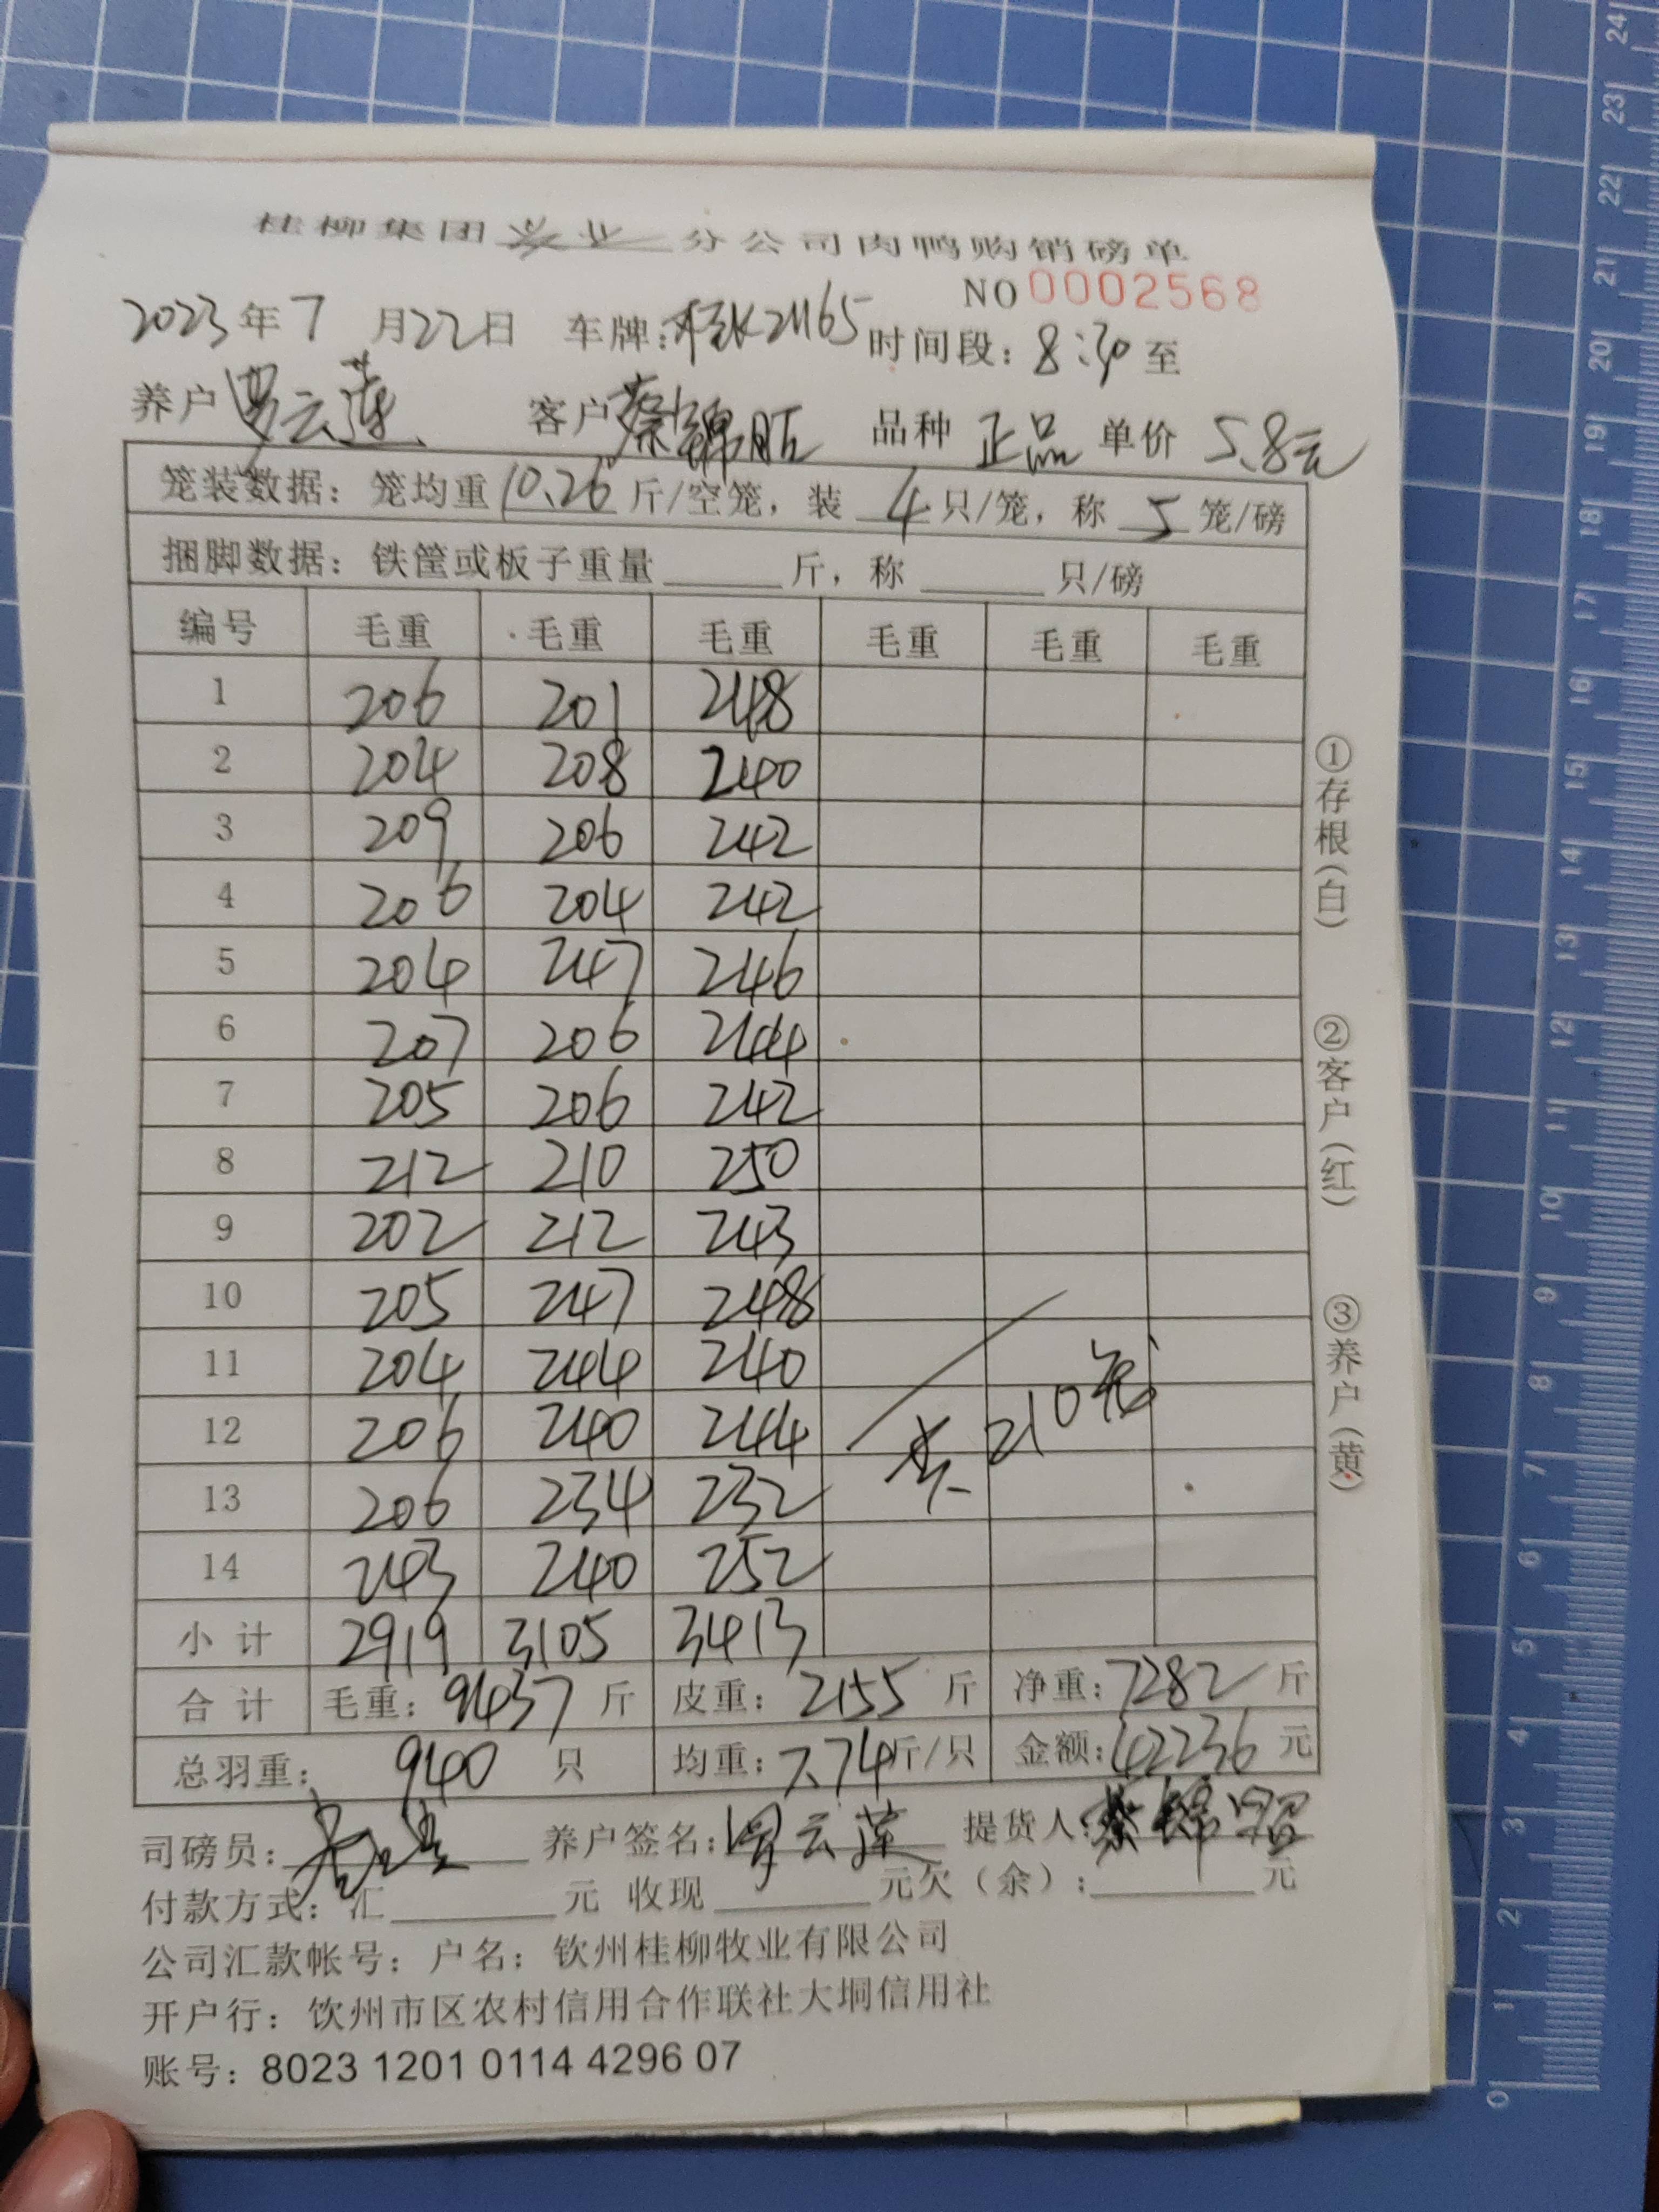 桂柳集团兴业分公司肉鸭购销磅单
NO 0002568
2023年7月22日 车牌:桂K2M65 时间段:8:30至
养户 云莲 客户 蔡锦 品种 正品 单价 5.8元
笼装数据:笼均重10.26斤/空笼,装4只/笼,称5笼/磅
捆脚数据:铁筐或板子重量____斤,称____只/磅
编号 毛重 毛重 毛重 毛重 毛重 毛重
1 206 201 248
2 204 208 240
3 209 206 242
4 206 204 242
5 204 247 246
6 207 206 244
7 205 206 242
8 212 210 250
9 202 212 243
10 205 247 248
11 204 244 240
12 206 240 244
共210笼
13 206 234 232
14 243 240 252
小计 2919 3105 3413
合计 毛重:9437斤 皮重:2155斤 净重:7282斤
总羽重:940只 均重:7.74斤/只 金额:42236元
司磅员: 养户签名:云莲 提货人:蔡锦
付款方式:汇____元 收现____元欠(余):____元
公司汇款帐号:户名:钦州桂柳牧业有限公司
开户行:钦州市区农村信用合作联社大垌信用社
账号:8023 1201 0114 4296 07
①存根(白) ②客户(红) ③养户(黄)
24
23
22
21
20
19
18
17
16
15
14
13
12
11
10
9
8
7
6
5
4
3
2
1
0